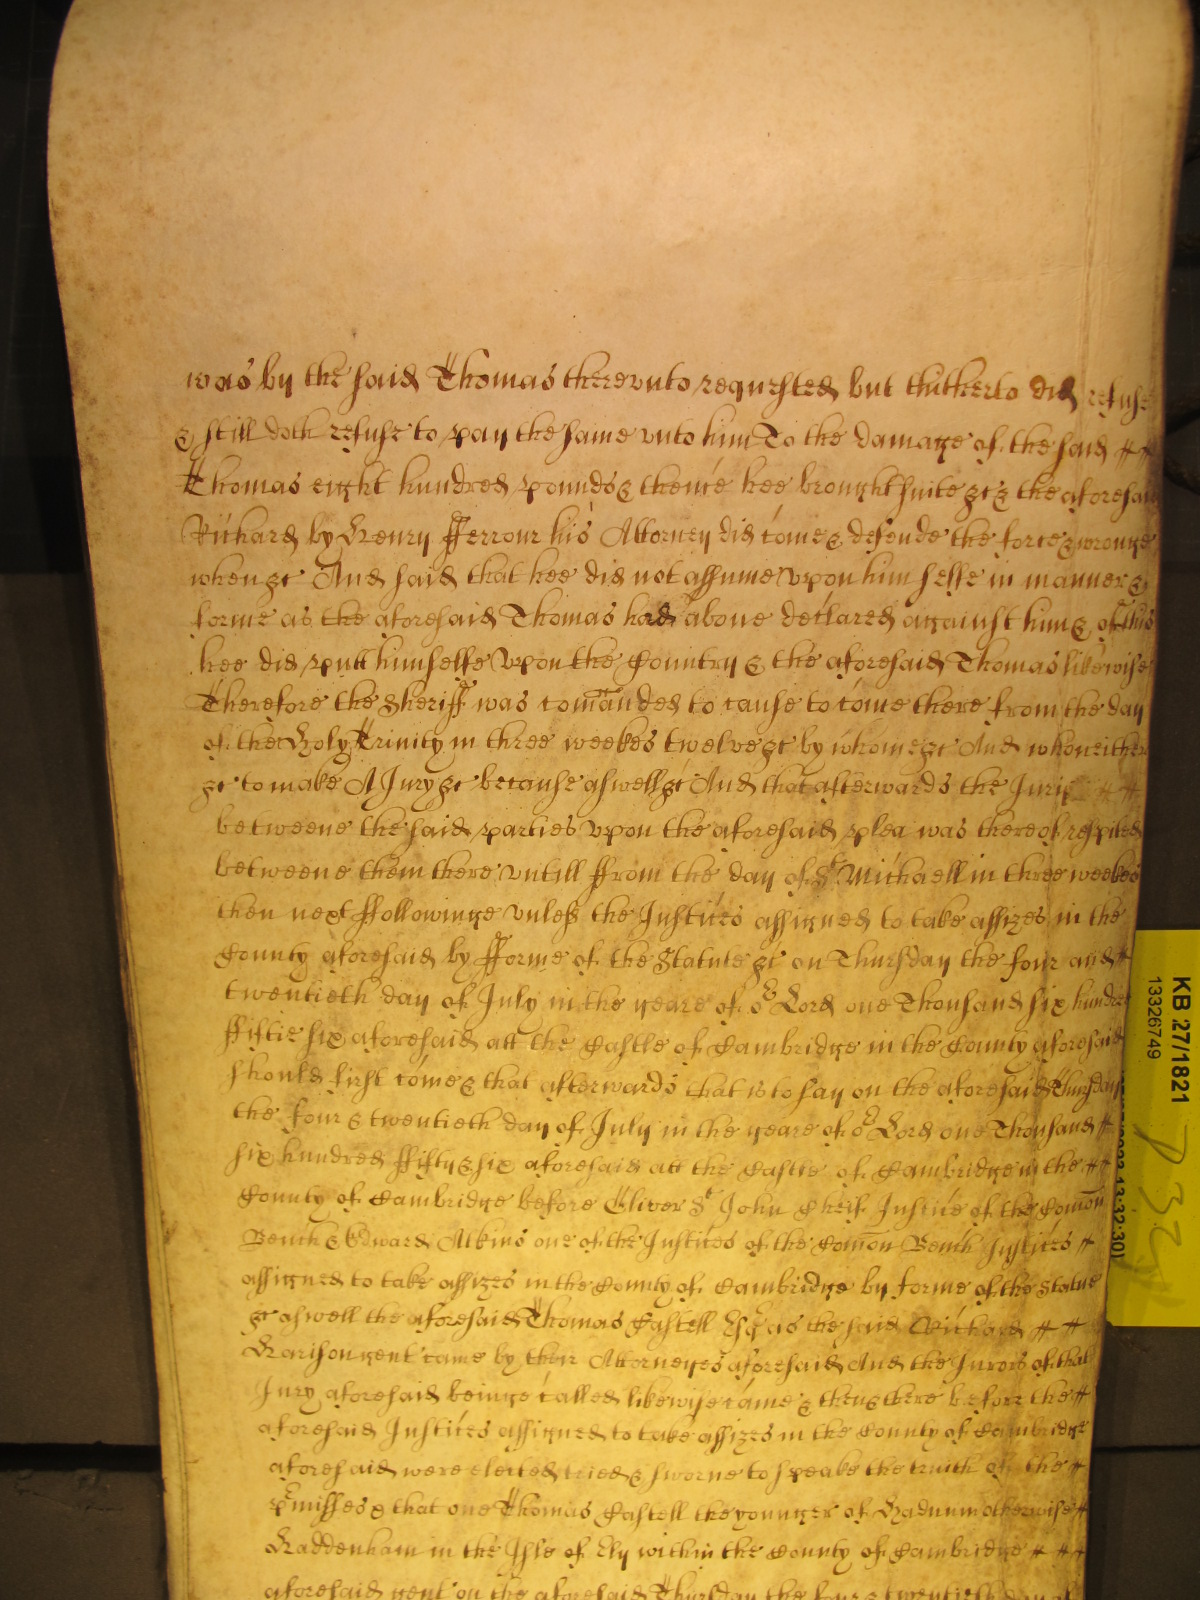 was by the said Thomas therevnto requested but thitherto did refuse
& still doth refuse to pay the same vnto him To the damage of the said
Thomas eight hundred pounds & thence hee brought suite &c & the aforesaid
Richard by Henry Fferrour his Attorney did come & defende the force & wronge
when &c And said that hee did not assume vpon him selfe in manner &
forme as the aforesaid Thomas had aboue declared against him & of this
hee did putt himselfe vpon the Country & the aforesaid Thomas likewise
Therefore the Sheriff was comanded to cause to come there from the day
of the Holy Trinity in three weekes twelve &c by whome &c And who neither
&c to make A Jury &c because aswell &c And that afterwards the Jury
betweene the said parties vpon the aforesaid plea was thereof respited
betweene them there vntill ffrom the day of St Michaell in three weekes
then next ffollowinge vnless the Justices assigned to take assizes in the
County aforesaid by fforme of the Statute &c on Thursday the four and
twentieth day of July in the yeare of or Lord one Thousand six hundred
ffiftie six aforesaid att the Castle of Cambridge in the County aforesaid
should first come & that afterwards that is to say on the aforesaid Thursday
the four & twentieth day of July in the yeare of or Lord one Thousand
six hundred ffifty & six aforesaid att the Castle of Cambridge in the
County of Cambridge before Oliver St John Cheif Justice of the Comon
Bench & Edward Atkins one of the Justices of the Comon Bench Justices
assigned to take assizes in the County of Cambridge by forme of the Statute
&c aswell the aforesaid Thomas Castell Esqr as the said Richard
Harison gent came by their Attorneyes aforesaid And the Jurors of that
Jury aforesaid beinge called likewise came & then & there before the
aforesaid Justices assigned to take assizes in the County of Cambridge
aforesaid were elected tried & sworne to speake the truith of the
pmisses & that one Thomas Castell the younger of Hadnum otherwise
Haddenham in the Isle of Ely within the County of Cambridge
aforesaid gent on the aforesaid Thursday the four & twentieth day of
KB 27/1821
13326749
13:32:30